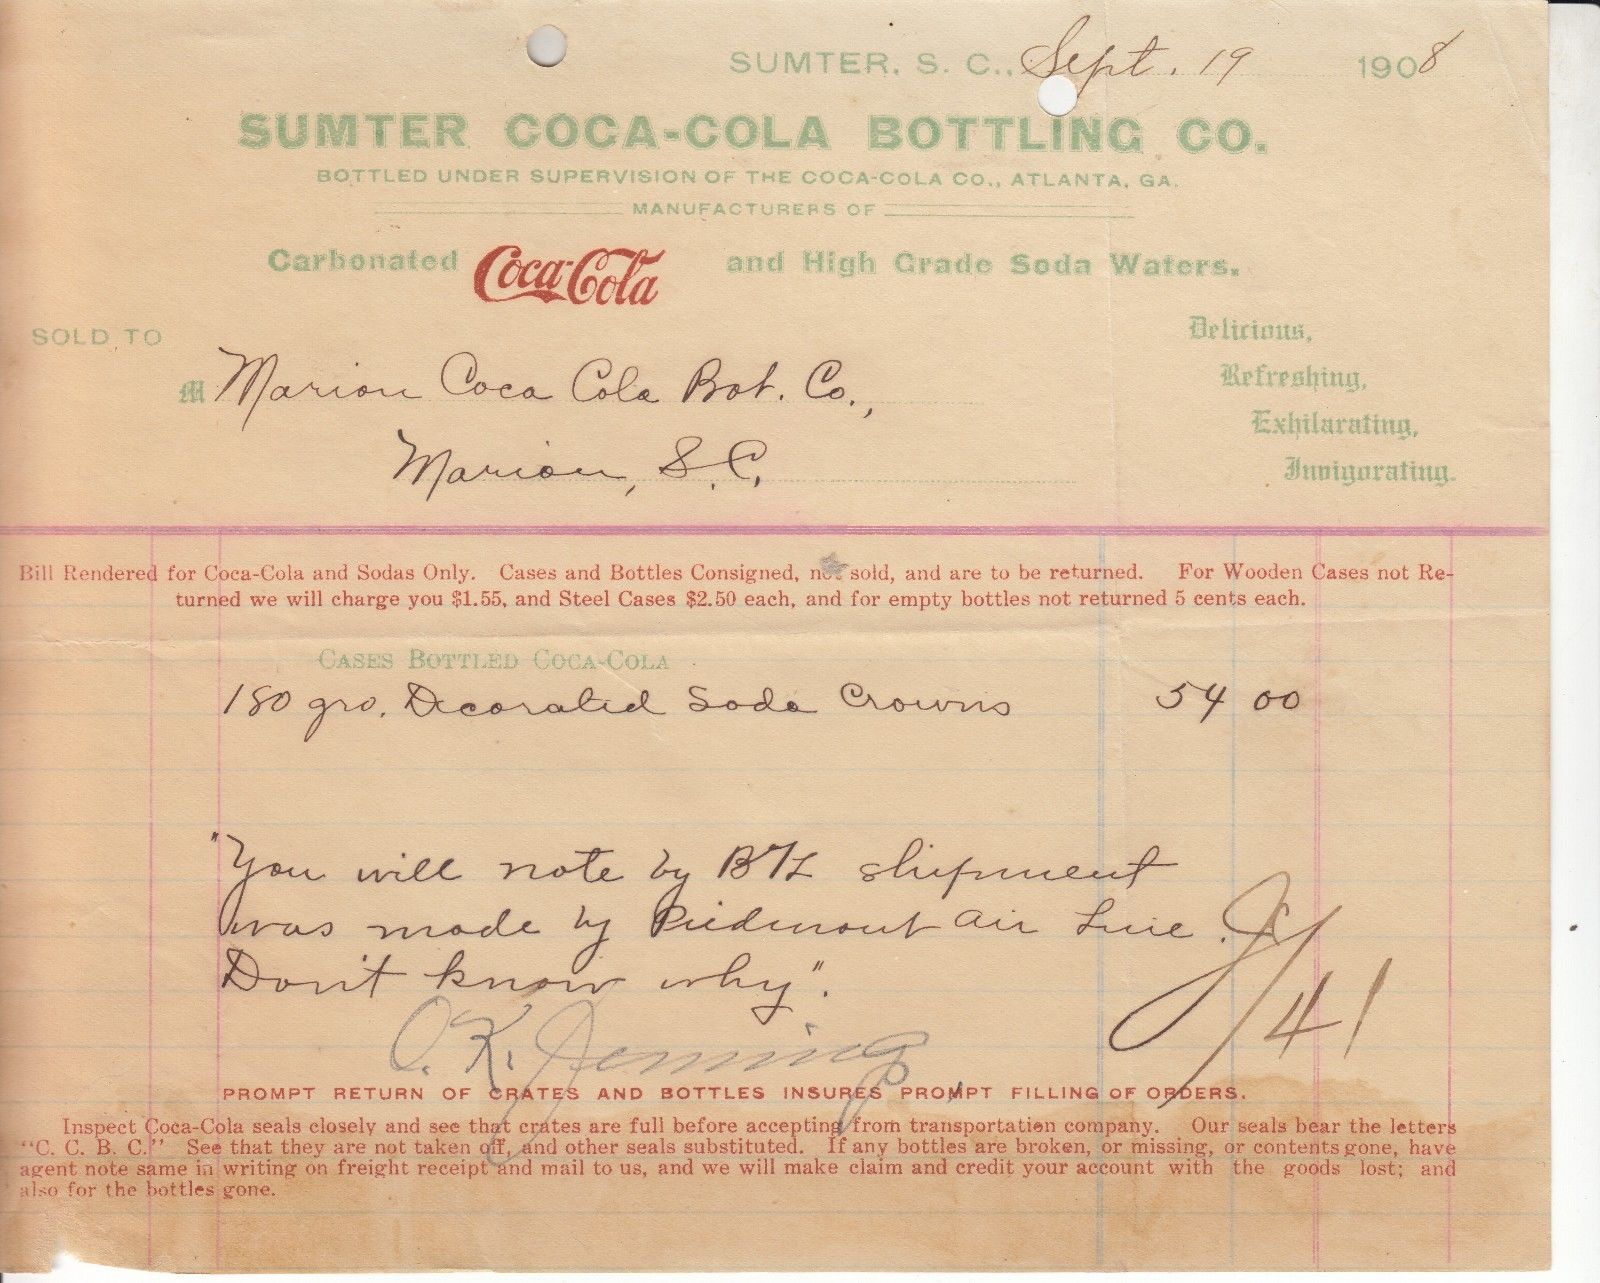 SUMTER, S. C., Sept. 19 1908
SUMTER COCA-COLA BOTTLING CO.
BOTTLED UNDER SUPERVISION OF THE COCA-COLA CO., ATLANTA, GA.
MANUFACTURERS OF
Carbonated Coca-Cola and High Grade Soda Waters.
SOLD TO
Delicious,
Refreshing,
Exhilarating,
Invigorating.
M Marion Coca Cola Bot. Co.,
Marion, S.C.
Bill Rendered for Coca-Cola and Sodas Only. Cases and Bottles Consigned, not sold, and are to be returned. For Wooden Cases not Re-
turned we will charge you $1.55, and Steel Cases $2.50 each, and for empty bottles not returned 5 cents each.
CASES BOTTLED COCA-COLA
180 gro. Decorated Soda Crowns 54 00
"You will note by B/L shipment
was made by Piedmont Air Line.
Don't know why".
41
O.K. Jennings
PROMPT RETURN OF CRATES AND BOTTLES INSURES PROMPT FILLING OF ORDERS.
Inspect Coca-Cola seals closely and see that crates are full before accepting from transportation company. Our seals bear the letters
"C. C. B. C." See that they are not taken off, and other seals substituted. If any bottles are broken, or missing, or contents gone, have
agent note same in writing on freight receipt and mail to us, and we will make claim and credit your account with the goods lost; and
also for the bottles gone.